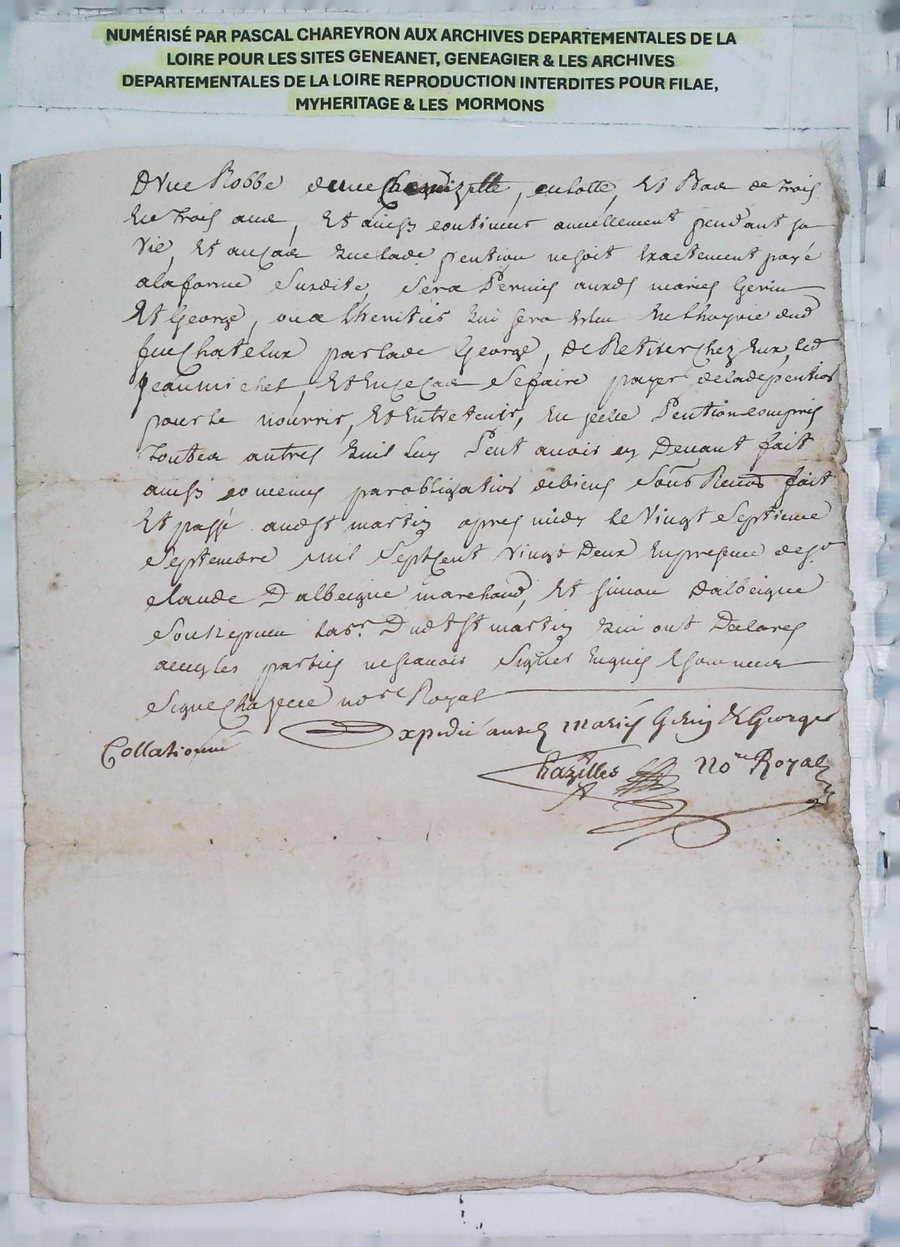 NUMÉRISÉ PAR PASCAL CHAREYRON AUX ARCHIVES DEPARTEMENTALES DE LA
LOIRE POUR LES SITES GENEANET, GENEAGIER & LES ARCHIVES
DEPARTEMENTALES DE LA LOIRE REPRODUCTION INTERDITES POUR FILAE,
MYHERITAGE & LES MORMONS
D'une Robbe culotte, Et Bas de trois
En trois ans, Et ainsy continuer annuellement pendant sa
vie, Et au cas que lade pention ne soit Exactement payé
a la forme susdite, sera Permis auxds mariés Gerin
Et George, ou a l'heritier qui sera Esleu En l'hoyrie dud
feu Chatelux par lade George, de Retirer chez Eux, led
Jean michel, Et En ce cas se faire payer de lade pention
pour le nourrir, Et Entretenir, En icelle Pention compris
toutes autres quil luy Peut avoir cy Devant fait
ainsy par obligation de biens sous Renon fait
Et passé audt st martin apres midy le vingt Septieme
Septembre mil Sept Cent vingt Deux En presence de sr
claude Dalbeigue marchand, Et simon dalbeigue
son nepveu Dudt st martin qui ont Declaré
avec les parties ne scavoir Signer Enquis
Signé no.re Royal
Expedié auxd mariés Gerin & George
Collationné
Chazilles No.re Royal